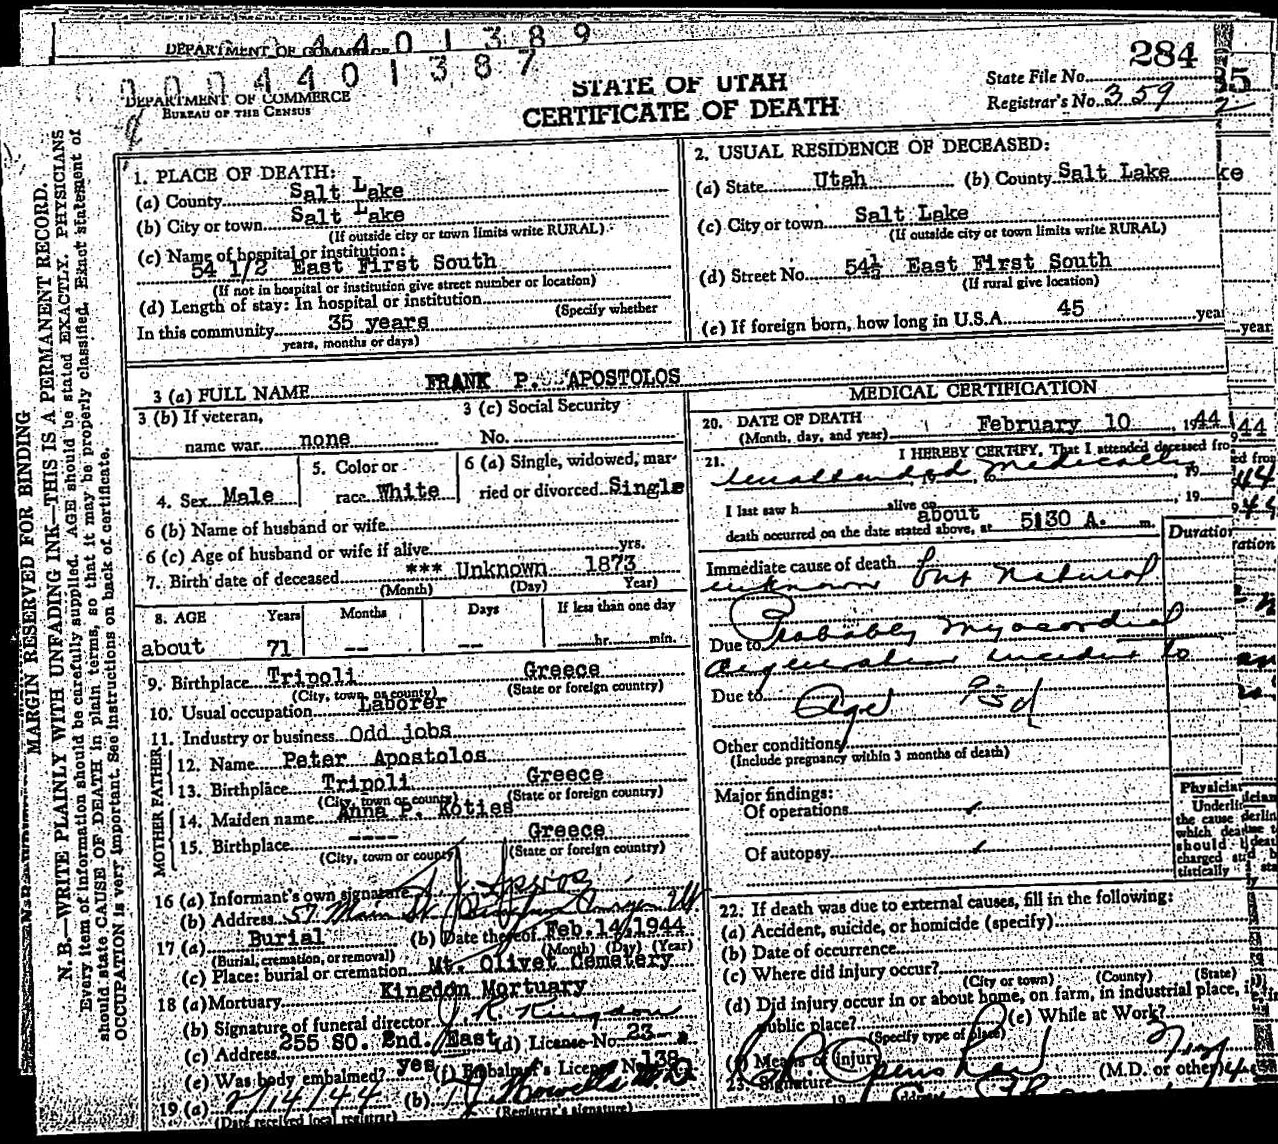 DEPARTMENT OF COMMERCE
4401389
0004401387
DEPARTMENT OF COMMERCE
BUREAU OF THE CENSUS
STATE OF UTAH
CERTIFICATE OF DEATH
284
State File No.
Registrar's No. 359
MARGIN RESERVED FOR BINDING
N. B.—WRITE PLAINLY WITH UNFADING INK—THIS IS A PERMANENT RECORD.
Every item of information should be carefully supplied. AGE should be stated EXACTLY. PHYSICIANS
should state CAUSE OF DEATH in plain terms, so that it may be properly classified. Exact statement of
OCCUPATION is very important. See instructions on back of certificate.
1. PLACE OF DEATH:
(a) County Salt Lake
(b) City or town Salt Lake
(If outside city or town limits write RURAL)
(c) Name of hospital or institution:
54 1/2 East First South
(If not in hospital or institution give street number or location)
(d) Length of stay: In hospital or institution
(Specify whether
In this community 35 years
years, months or days)
2. USUAL RESIDENCE OF DECEASED:
(a) State Utah (b) County Salt Lake
(c) City or town Salt Lake
(If outside city or town limits write RURAL)
(d) Street No. 54½ East First South
(If rural give location)
(e) If foreign born, how long in U.S.A. 45 year
3 (a) FULL NAME FRANK P. APOSTOLOS
3 (b) If veteran,
name war none
3 (c) Social Security
No.
4. Sex Male
5. Color or
race White
6 (a) Single, widowed, mar-
ried or divorced Single
6 (b) Name of husband or wife
6 (c) Age of husband or wife if alive yrs.
7. Birth date of deceased *** Unknown 1873
(Month) (Day) Year)
8. AGE Years Months Days If less than one day
about 71 -- -- hr. min.
9. Birthplace Tripoli Greece
(City, town, or county) (State or foreign country)
10. Usual occupation Laborer
11. Industry or business Odd jobs
FATHER
12. Name Peter Apostolos
13. Birthplace Tripoli Greece
(City, town or county) (State or foreign country)
MOTHER
14. Maiden name Anna P. Koties
15. Birthplace ---- Greece
(City, town or county) (State or foreign country)
16 (a) Informant's own signature
(b) Address 57 Main St
17 (a) Burial (b) Date thereof Feb. 14, 1944
(Burial, cremation, or removal) (Month) (Day) (Year)
(c) Place: burial or cremation Mt. Olivet Cemetery
18 (a) Mortuary Kingdon Mortuary
(b) Signature of funeral director J. R. Kingdon
(c) Address 255 SO. 2nd. East (d) License No. 23
(e) Was body embalmed? yes (f) Embalmer's License No. 138
19 (a) 2/14/44 (b)
(Date received local registrar) (Registrar's signature)
MEDICAL CERTIFICATION
20. DATE OF DEATH
(Month, day, and year) February 10, 1944
21. I HEREBY CERTIFY, That I attended deceased fro
unattended medically 19
I last saw h alive on , 19
death occurred on the date stated above, at about 5:30 A. m.
Duration
Immediate cause of death
unknown but natural
Due to Probably myocardial
degeneration incident to
Due to Age
Other conditions
(Include pregnancy within 3 months of death)
Major findings:
Of operations
Of autopsy
Physician
Underlin
the cause
which dea
should b
charged sta
tistically
22. If death was due to external causes, fill in the following:
(a) Accident, suicide, or homicide (specify)
(b) Date of occurrence
(c) Where did injury occur?
(City or town) (County) (State)
(d) Did injury occur in or about home, on farm, in industrial place, in
public place? (e) While at Work?
(Specify type of place)
(f) Means of injury
23. Signature (M.D. or other)